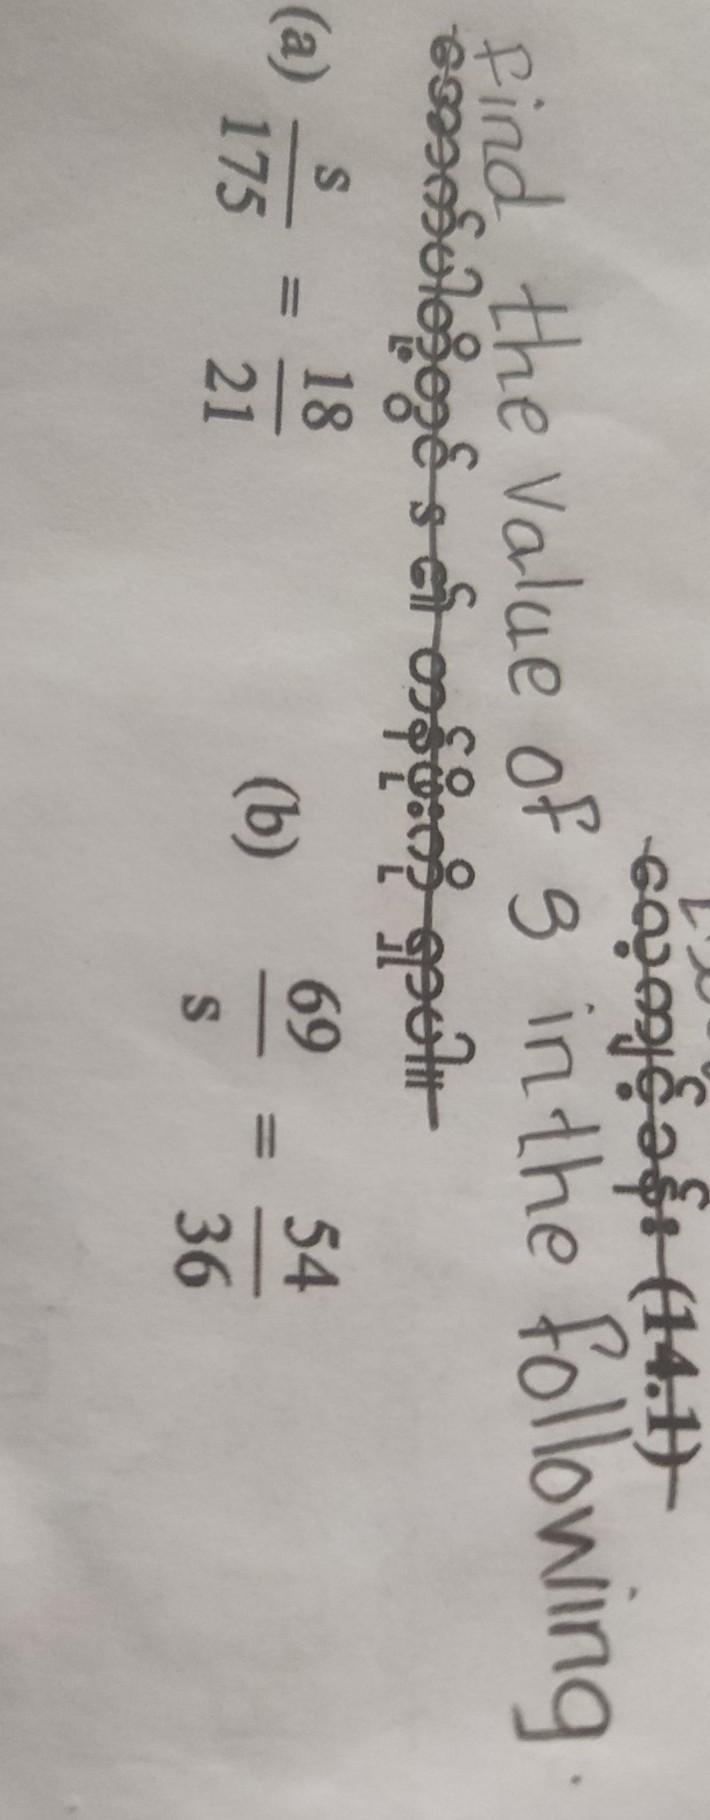 လေ့ကျင့်ခန်း (14.1)
Find the value of s in the following.
အောက်ပါတို့တွင် s ၏ တန်ဖိုးကို ရှာပါ။
(a) s/175 = 18/21 (b) 69/s = 54/36